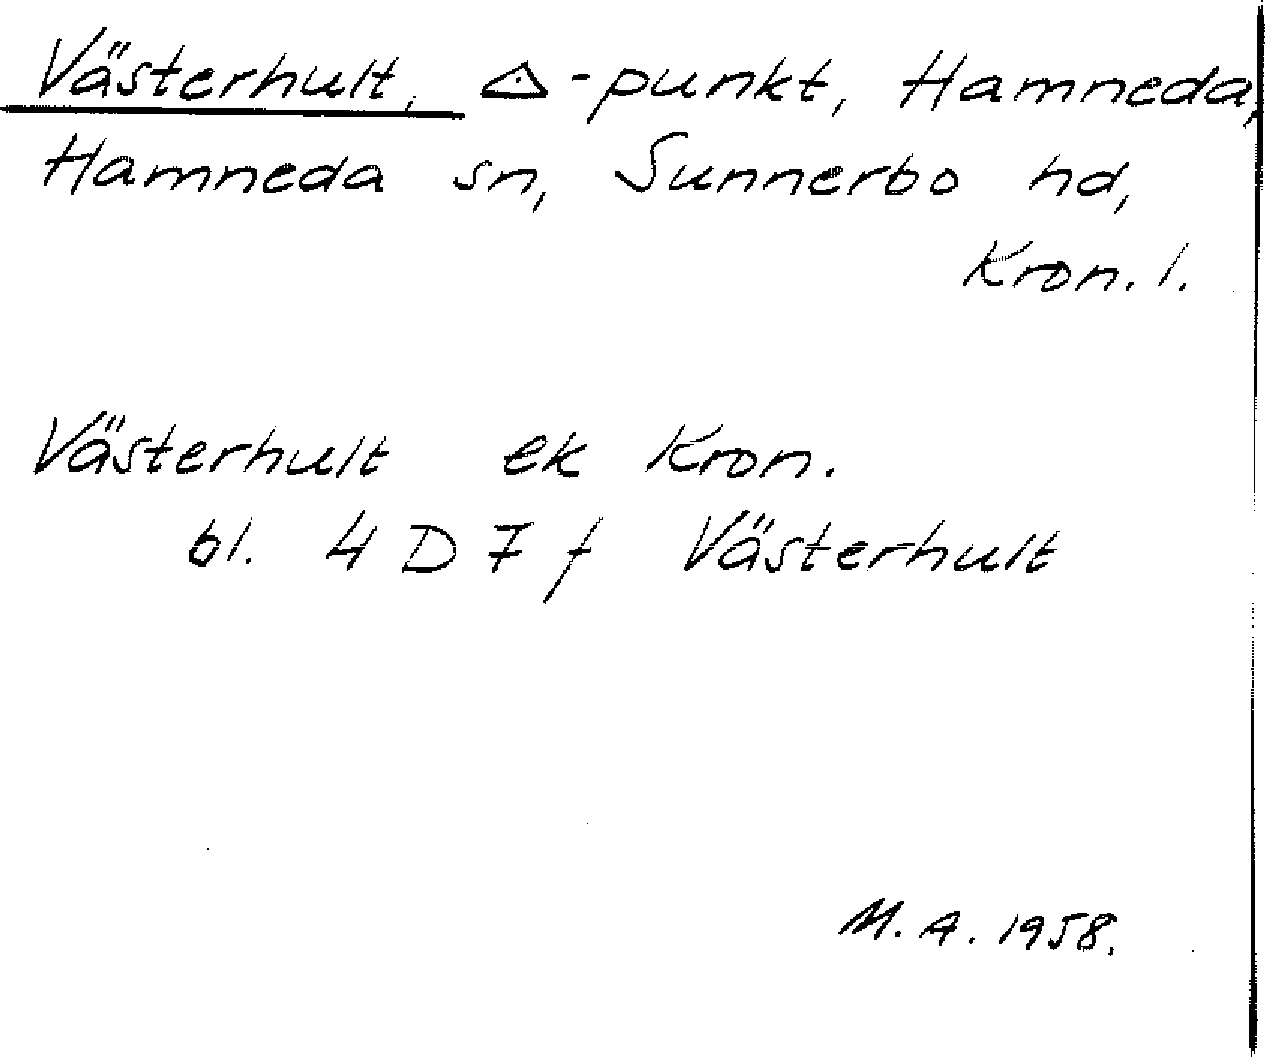 Västerhult, △-punkt, Hamneda,
Hamneda sn, Sunnerbo hd,
Kron. l.
Västerhult ek Kron.
bl. 4 D 7 f Västerhult
M. A. 1958.